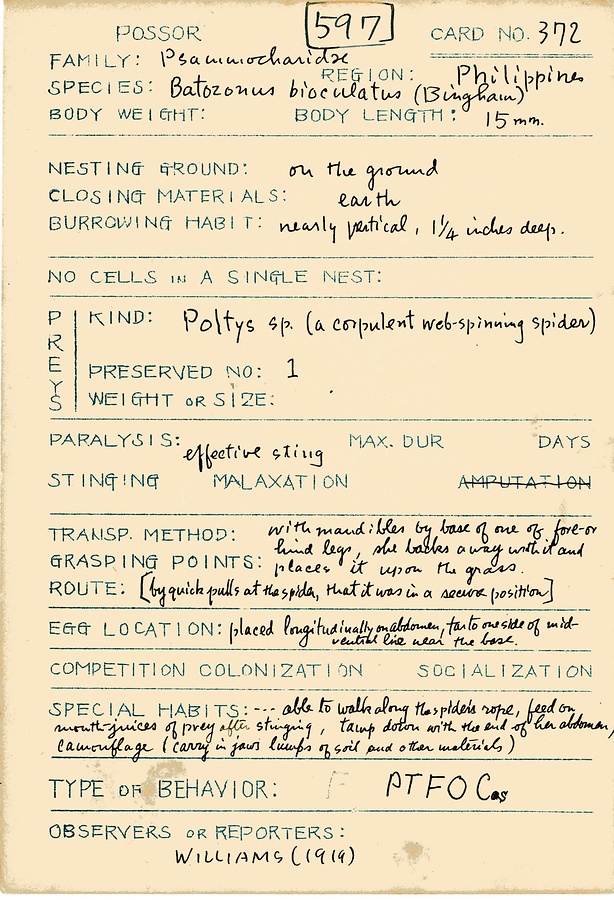 POSSOR 597 CARD NO. 372
FAMILY: Psammocharidæ
REGION: Philippines
SPECIES: Batozonus bioculatus (Bingham)
BODY WEIGHT: BODY LENGTH: 15 mm.
NESTING GROUND: on the ground
CLOSING MATERIALS: earth
BURROWING HABIT: nearly vertical, 1¼ inches deep.
NO CELLS IN A SINGLE NEST:
PREYS
KIND: Poltys sp. (a corpulent web-spinning spider)
PRESERVED NO: 1
WEIGHT OR SIZE:
PARALYSIS: effective sting MAX. DUR DAYS
STINGING MALAXATION AMPUTATION
TRANSP. METHOD: with mandibles by base of one of fore-or
GRASPING POINTS: hind legs, she backs away with it and
places it upon the grass.
ROUTE: [by quick pulls at the spider, that it was in a secure position]
EGG LOCATION: placed longitudinally on abdomen, far to one side of mid-
ventral line near the base.
COMPETITION COLONIZATION SOCIALIZATION
SPECIAL HABITS: --- able to walk along the spider's rope, feed on
mouth-juices of prey after stinging, tamp down with the end of her abdomen,
camouflage (carry in jaws lumps of soil and other materials)
TYPE OF BEHAVIOR: F PTFOCs
OBSERVERS OR REPORTERS:
WILLIAMS (1919)